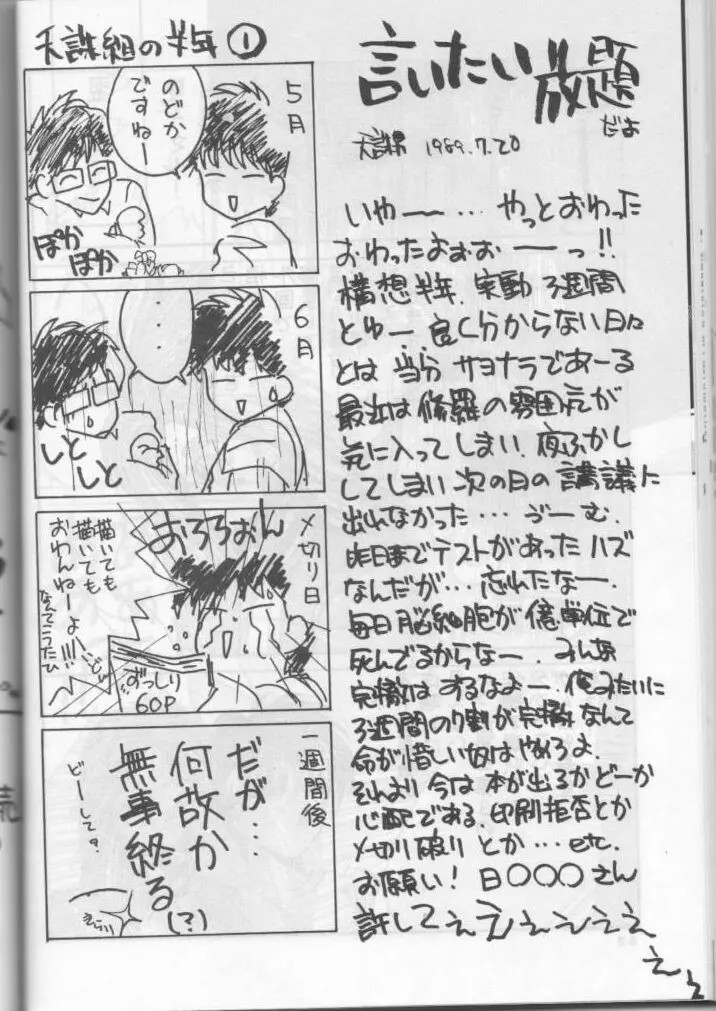 天誅組の半年 ①
5月
のどか
ですねー
ぽか
ぽか
6月
・・・
しと
しと
〆切り日
おろろぉん
描いても
描いても
おわんねーよー!!!
ずっしり
60P
一週間後
だが…
何故か
無事終る
(?)
どーして?
言いたい放題
だよ
天誅組 1989.7.20
いやー … やっとおわった
おわったよぉぉーっ!!
構想半年、実動3週間
とゆー 良く分からない日々
とは 当分 サヨナラであーる
最近は 修羅の雰囲気が
気に入ってしまい、夜ふかし
してしまい 次の日の 講議に
出れなかった… うーむ、
昨日までテストがあったハズ
なんだが… 忘れたなー、
毎日脳細胞が 億単位で
死んでるからなー、みんな
完徹は するなよー、俺みたいに
3週間の9割が完徹なんて
命が惜しい奴はやめろよ、
それより 今は 本が出るかどーか
心配である、印刷拒否とか
〆切り破り とか … etc.
お願い! 日○○○さん
許してぇえぇぇぇぇ
ぇぇ